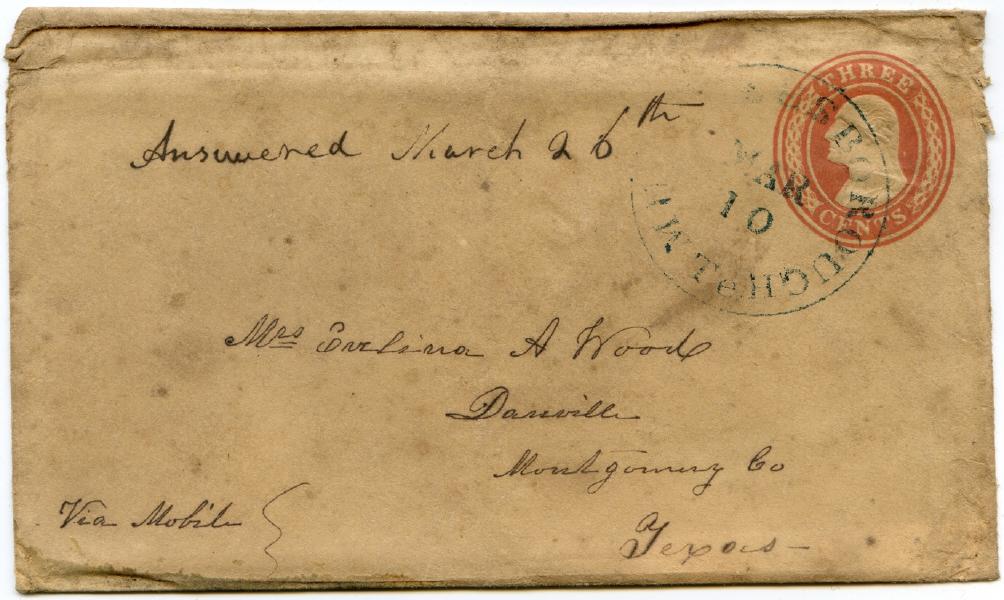 THREE
CENTS
MAR
10
Answered March 26th
Mrs Evelina A Wood
Danville
Montgomery Co
Via Mobile
Texas